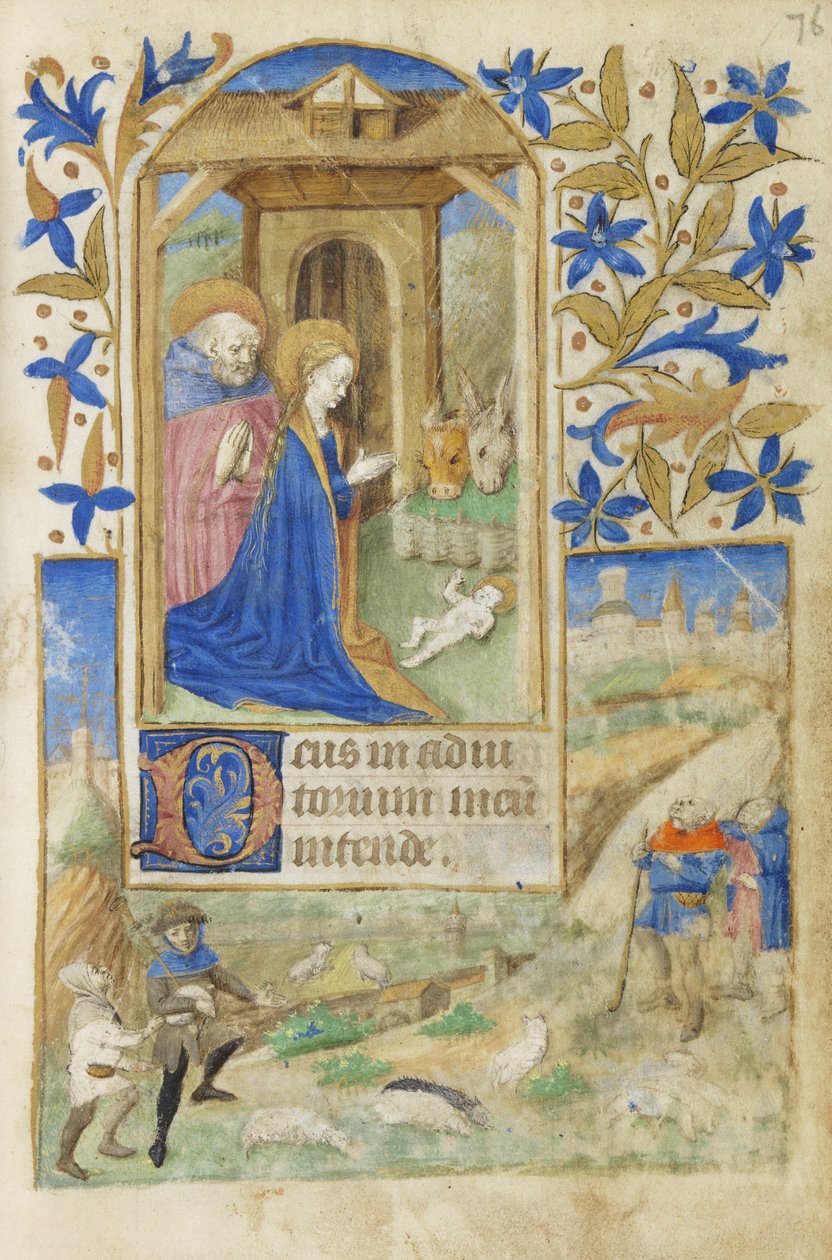 76
Deus in adiu
torium meū
intende.